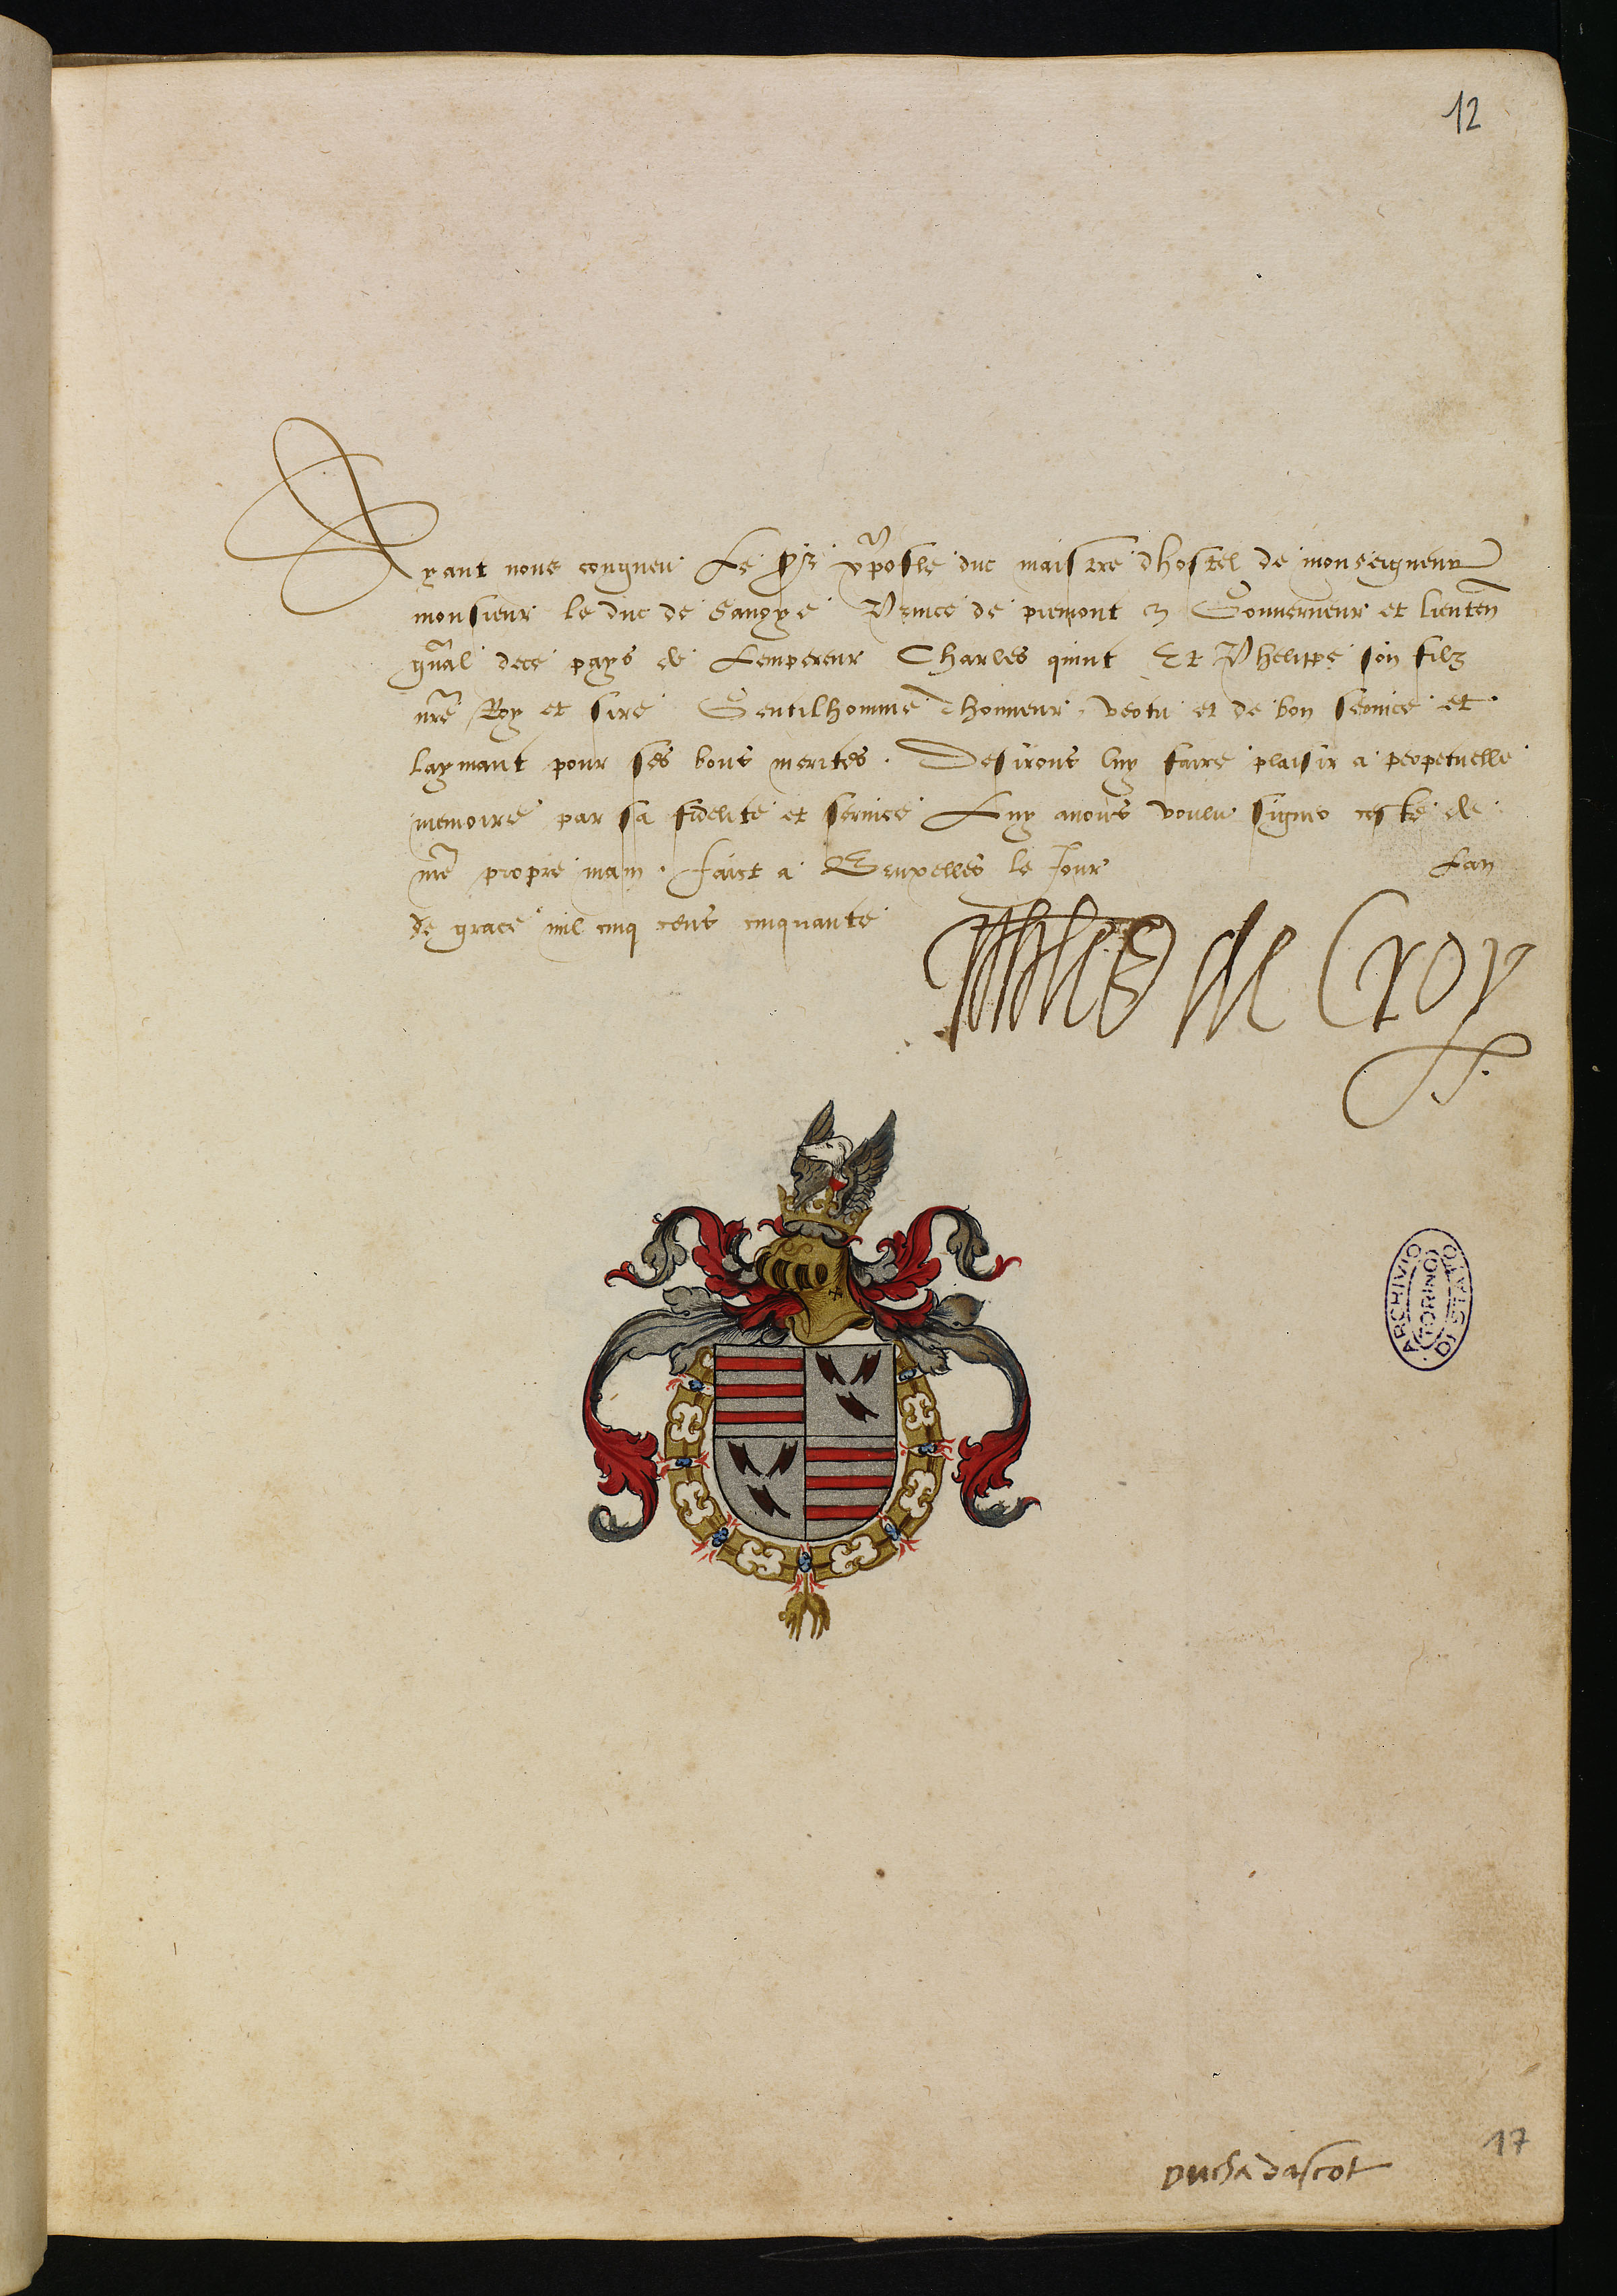 12
Ayant nous congneu Le duc maistre dhostel de monseigneur
monsieur le duc de Savoye Prince de piemont Gouverneur et lieuten
gnal dece pays de Lempereur Charles quint Et Phelippe son filz
nre Roy et sire Gentilhomme dhonneur vertu et de bon service et
laymant pour ses bons merites. Desirons luy faire plaisir a perpetuelle
memoire par sa fidelite et service Luy avons voulu signer ceste de
nre propre main. faict a Bruxelles le Jour Lan
de grace mil cinq cens cinquante
Phles de Croy
ARCHIVIO DI STATO
(TORINO)
17
Ducha dascot